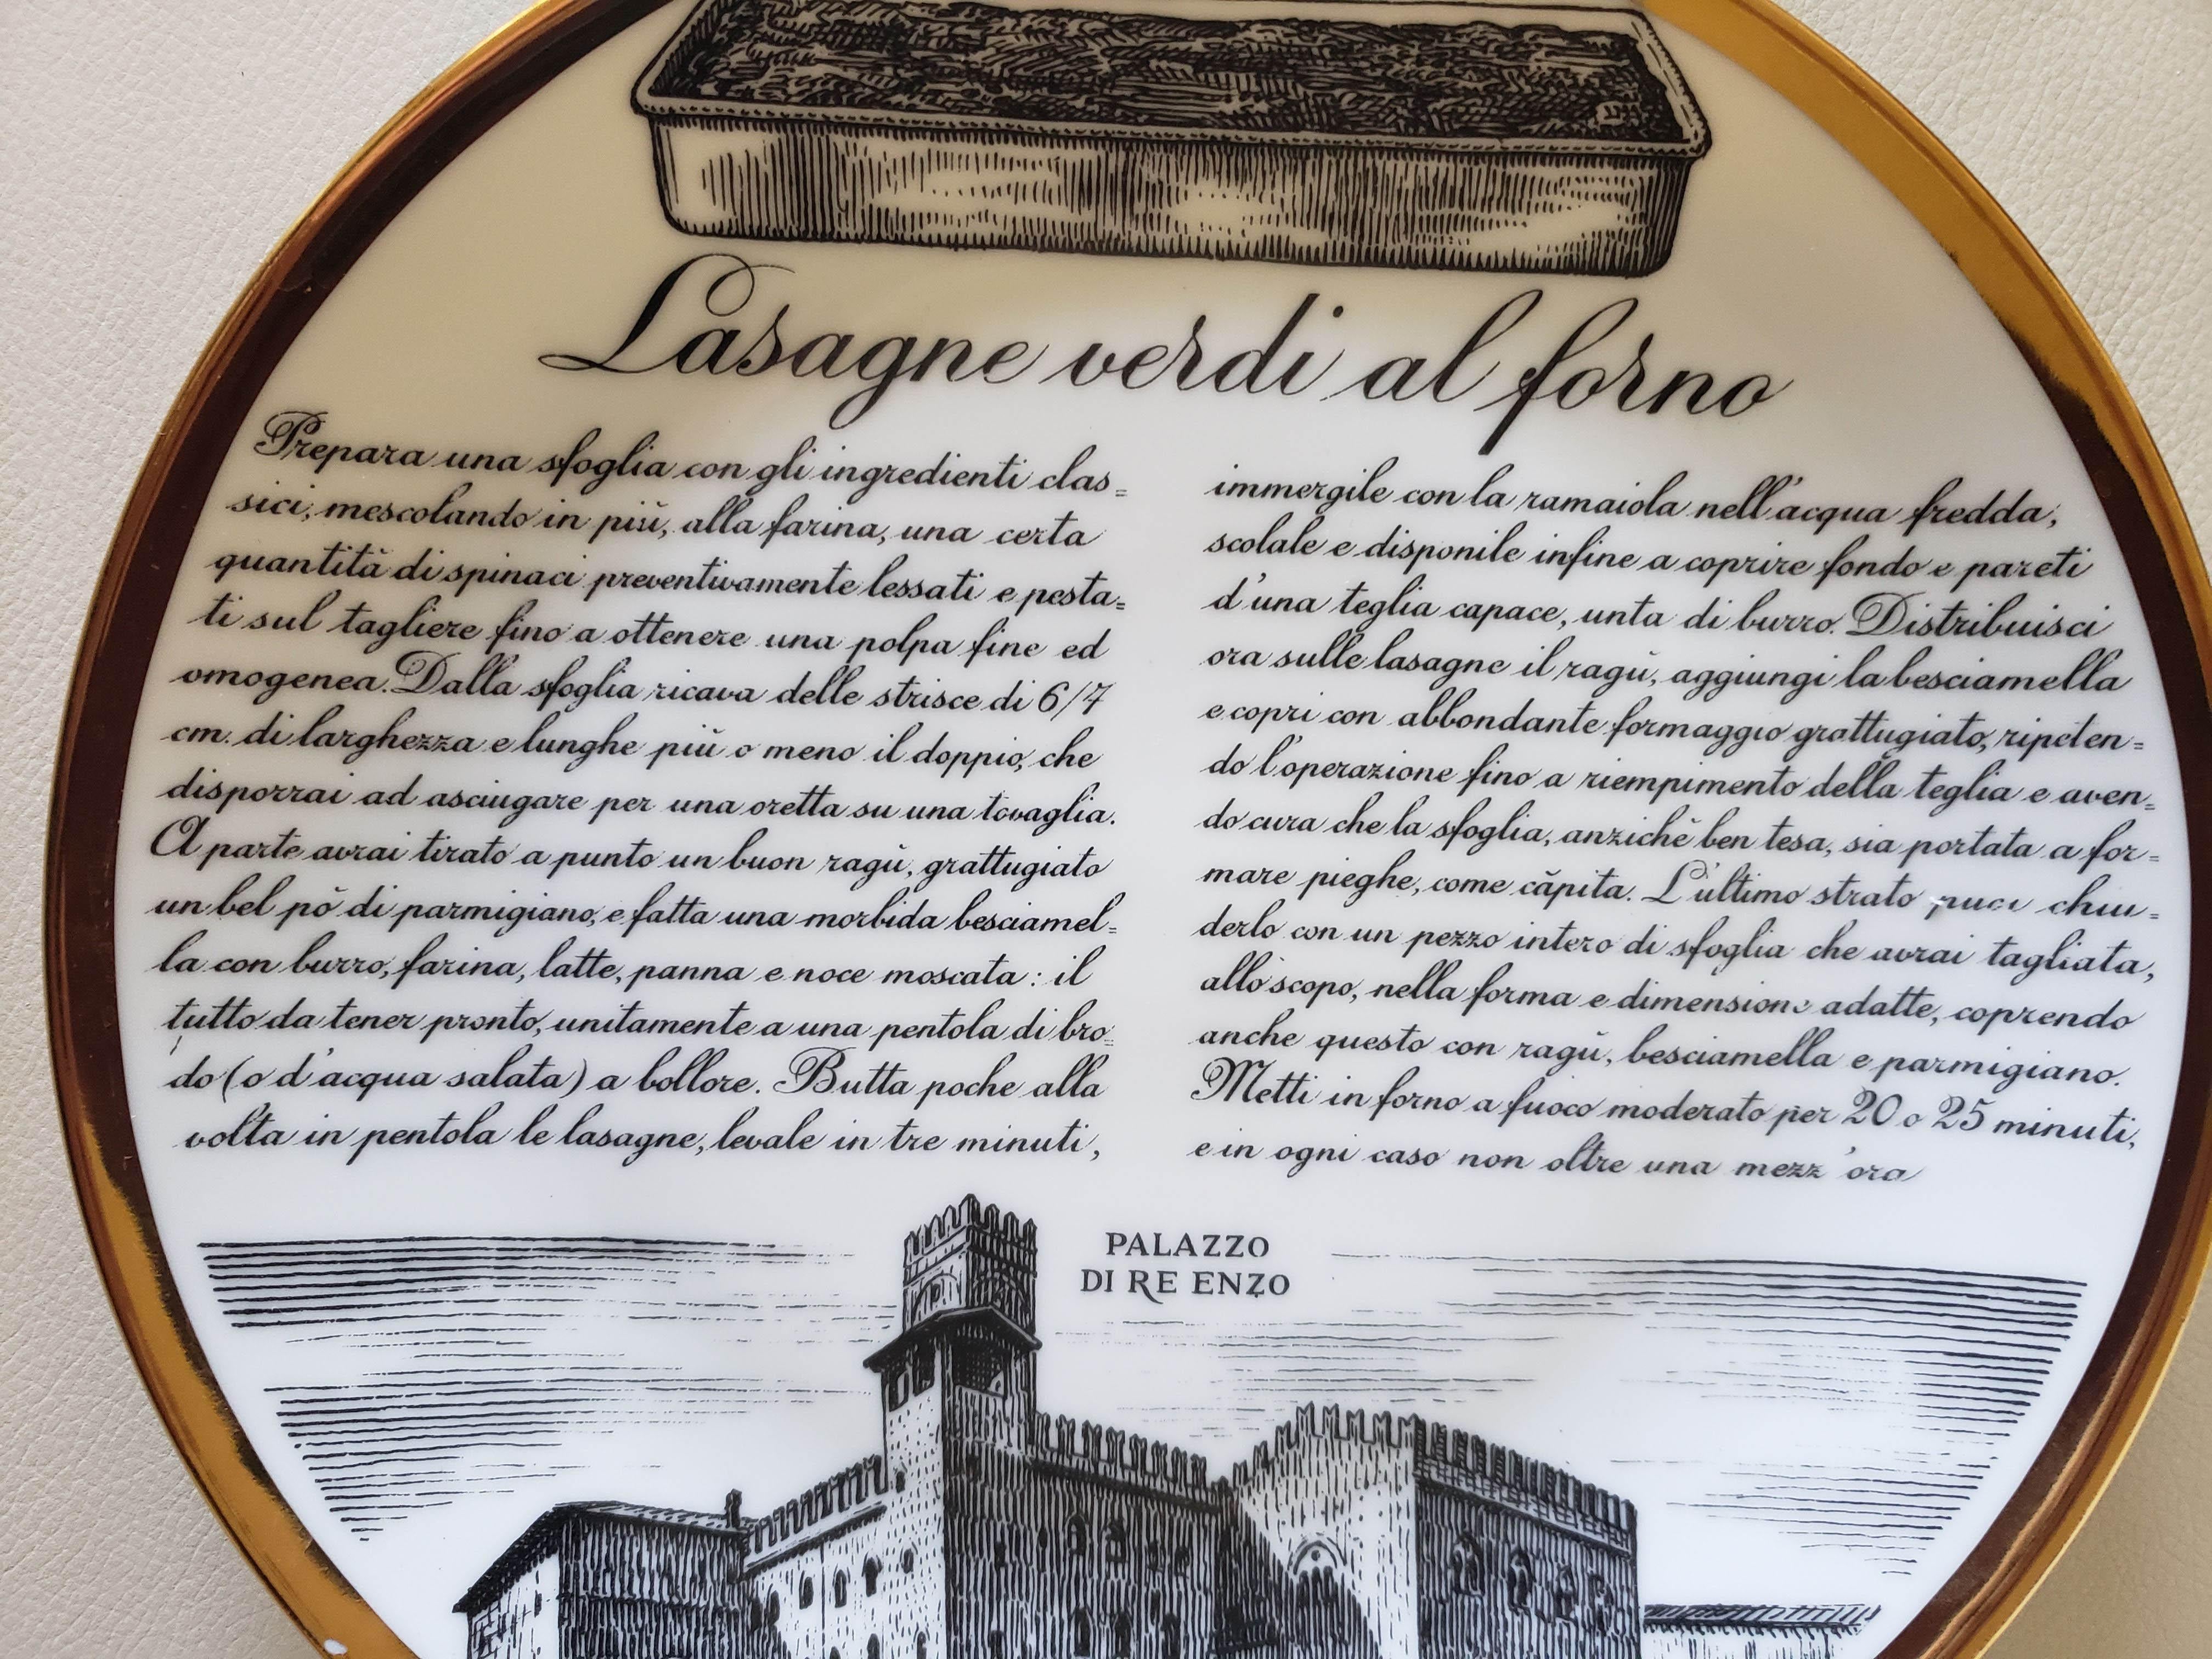 Lasagne verdi al forno
Prepara una sfoglia con gli ingredienti clas=
sici, mescolando in più, alla farina, una certa
quantità di spinaci preventivamente lessati e pesta=
ti sul tagliere fino a ottenere una polpa fine ed
omogenea. Dalla sfoglia ricava delle strisce di 6/7
cm. di larghezza e lunghe più o meno il doppio, che
disporrai ad asciugare per una oretta su una tovaglia.
A parte avrai tirato a punto un buon ragù, grattugiato
un bel pò di parmigiano, e fatta una morbida besciamel=
la con burro, farina, latte, panna e noce moscata: il
tutto da tener pronto, unitamente a una pentola di bro=
do (o d'acqua salata) a bollore. Butta poche alla
volta in pentola le lasagne, levale in tre minuti,
immergile con la ramaiola nell'acqua fredda,
scolale e disponile infine a coprire fondo e pareti
d'una teglia capace, unta di burro. Distribuisci
ora sulle lasagne il ragù, aggiungi la besciamella
e copri con abbondante formaggio grattugiato, ripeten=
do l'operazione fino a riempimento della teglia e aven=
do cura che la sfoglia, anzichè ben tesa, sia portata a for=
mare pieghe, come càpita. L'ultimo strato puoi chiu=
derlo con un pezzo intero di sfoglia che avrai tagliata,
allo scopo, nella forma e dimensione adatte, coprendo
anche questo con ragù, besciamella e parmigiano.
Metti in forno a fuoco moderato per 20 o 25 minuti,
e in ogni caso non oltre una mezz'ora
PALAZZO
DI RE ENZO